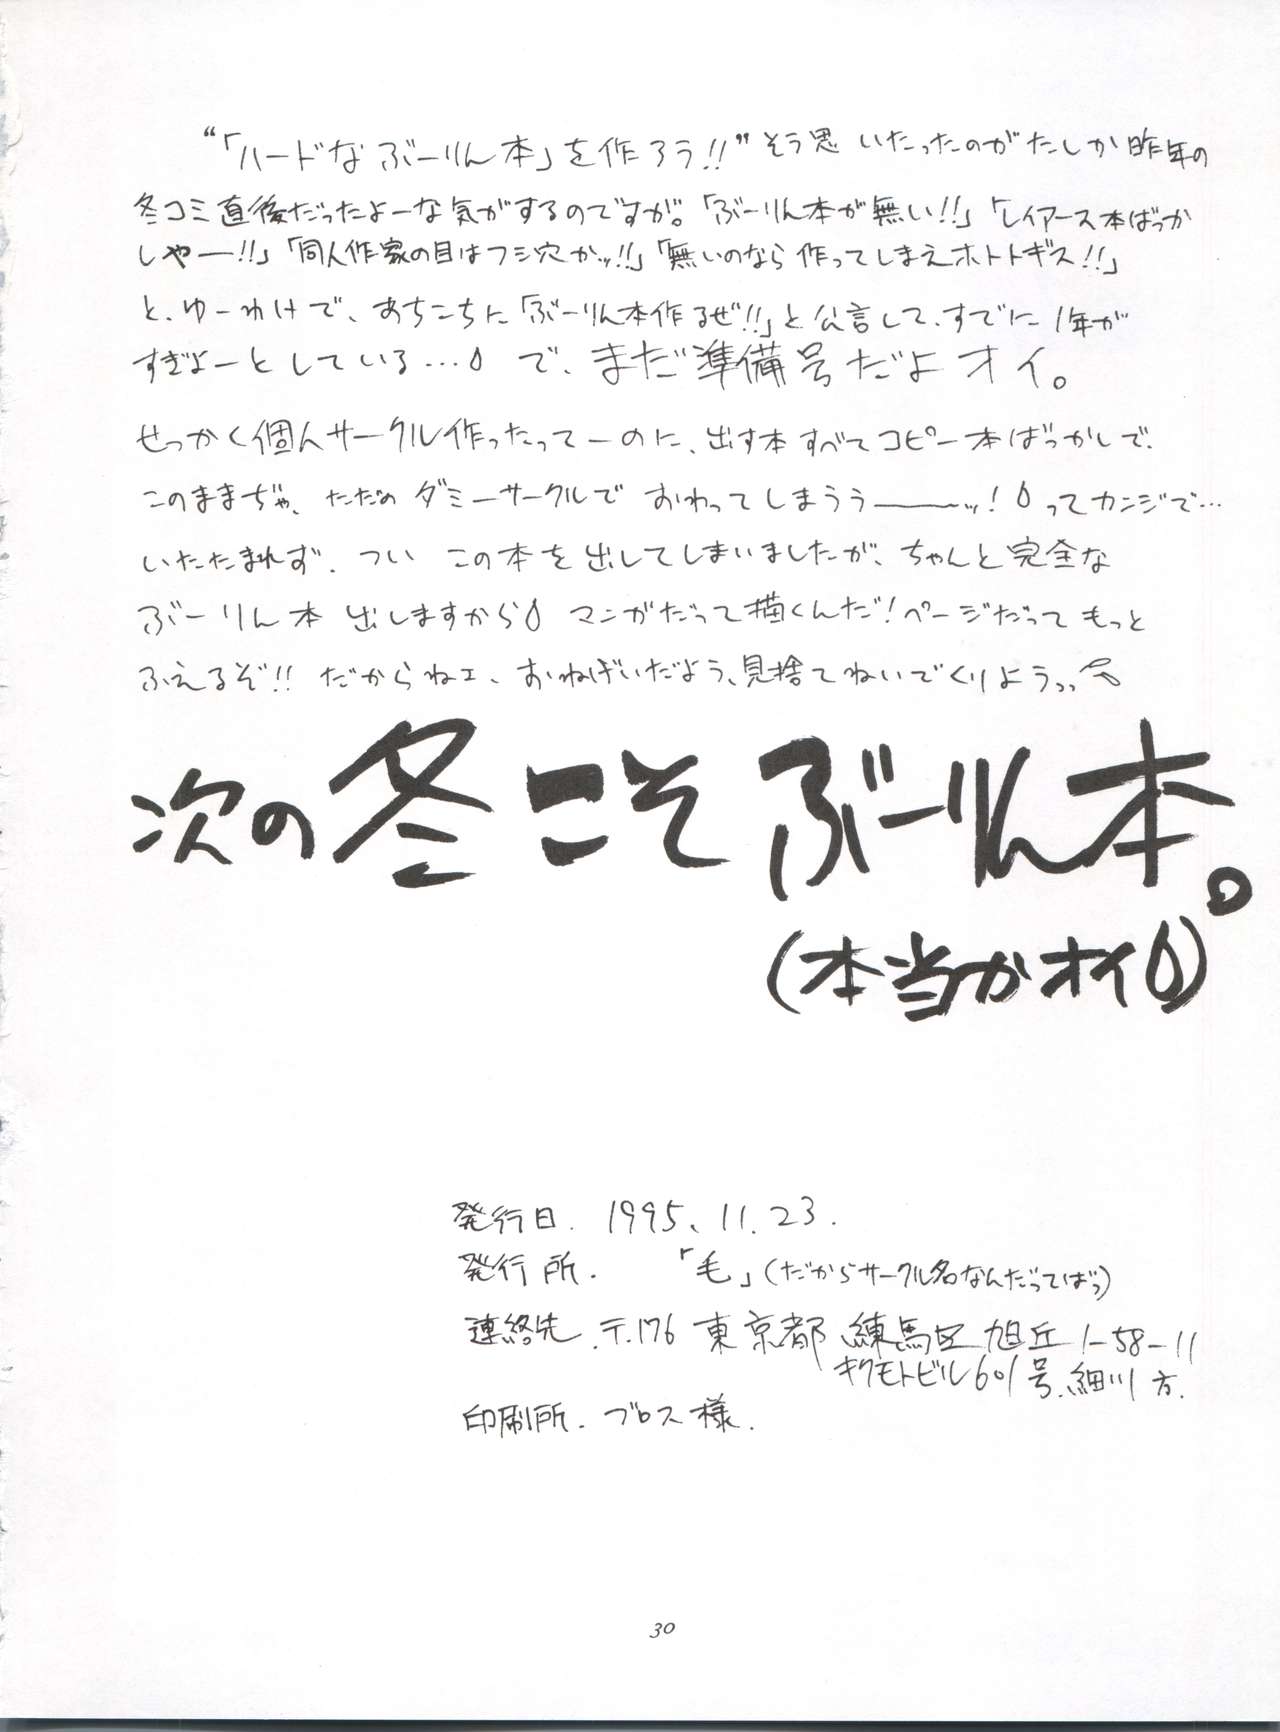 “「ハードなぶーりん本」を作ろう!!”そう思いたったのがたしか昨年の
冬コミ直後だったよーな気がするのですが。「ぶーりん本が無い!!」「レイアース本ばっか
しやー!!」「同人作家の目はフシ穴かッ!!」「無いのなら作ってしまえホトトギス!!」
と、ゆーわけで、あちこちに「ぶーりん本作るぜ!!」と公言して、すでに1年が
すぎよーとしている…で、まだ準備号だよオイ。
せっかく個人サークル作ったってーのに、出す本すべてコピー本ばっかしで、
このままぢゃ、ただのダミーサークルでおわってしまうぅーーッ!ってカンジで…
いたたまれず、ついこの本を出してしまいましたが、ちゃんと完全な
ぶーりん本出しますから マンガだって描くんだ!ページだってもっと
ふえるぞ!!だからねェ、おねげいだよう、見捨てねいでくりようっっ
次の冬こそぶーりん本。
(本当かオイ)
発行日. 1995、11.23.
発行所.「毛」(だからサークル名なんだってばっ)
連絡先.〒176 東京都練馬区旭丘1-58-11
キクモトビル601号.細川方.
印刷所.ブロス様.
30